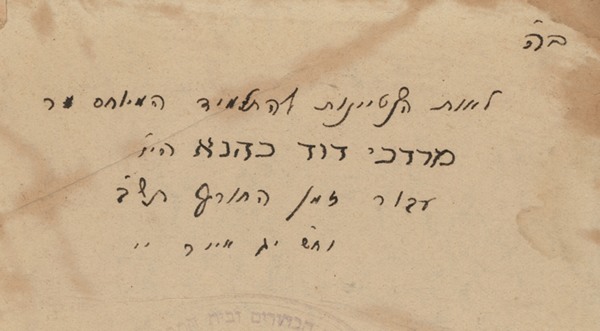 ב"ה
לאות הצטיינות להתלמיד המיוחס מר
מרדכי דוד כהנא הי"ו
עבור זמן החורף תש"ב
יג אייר
ובית